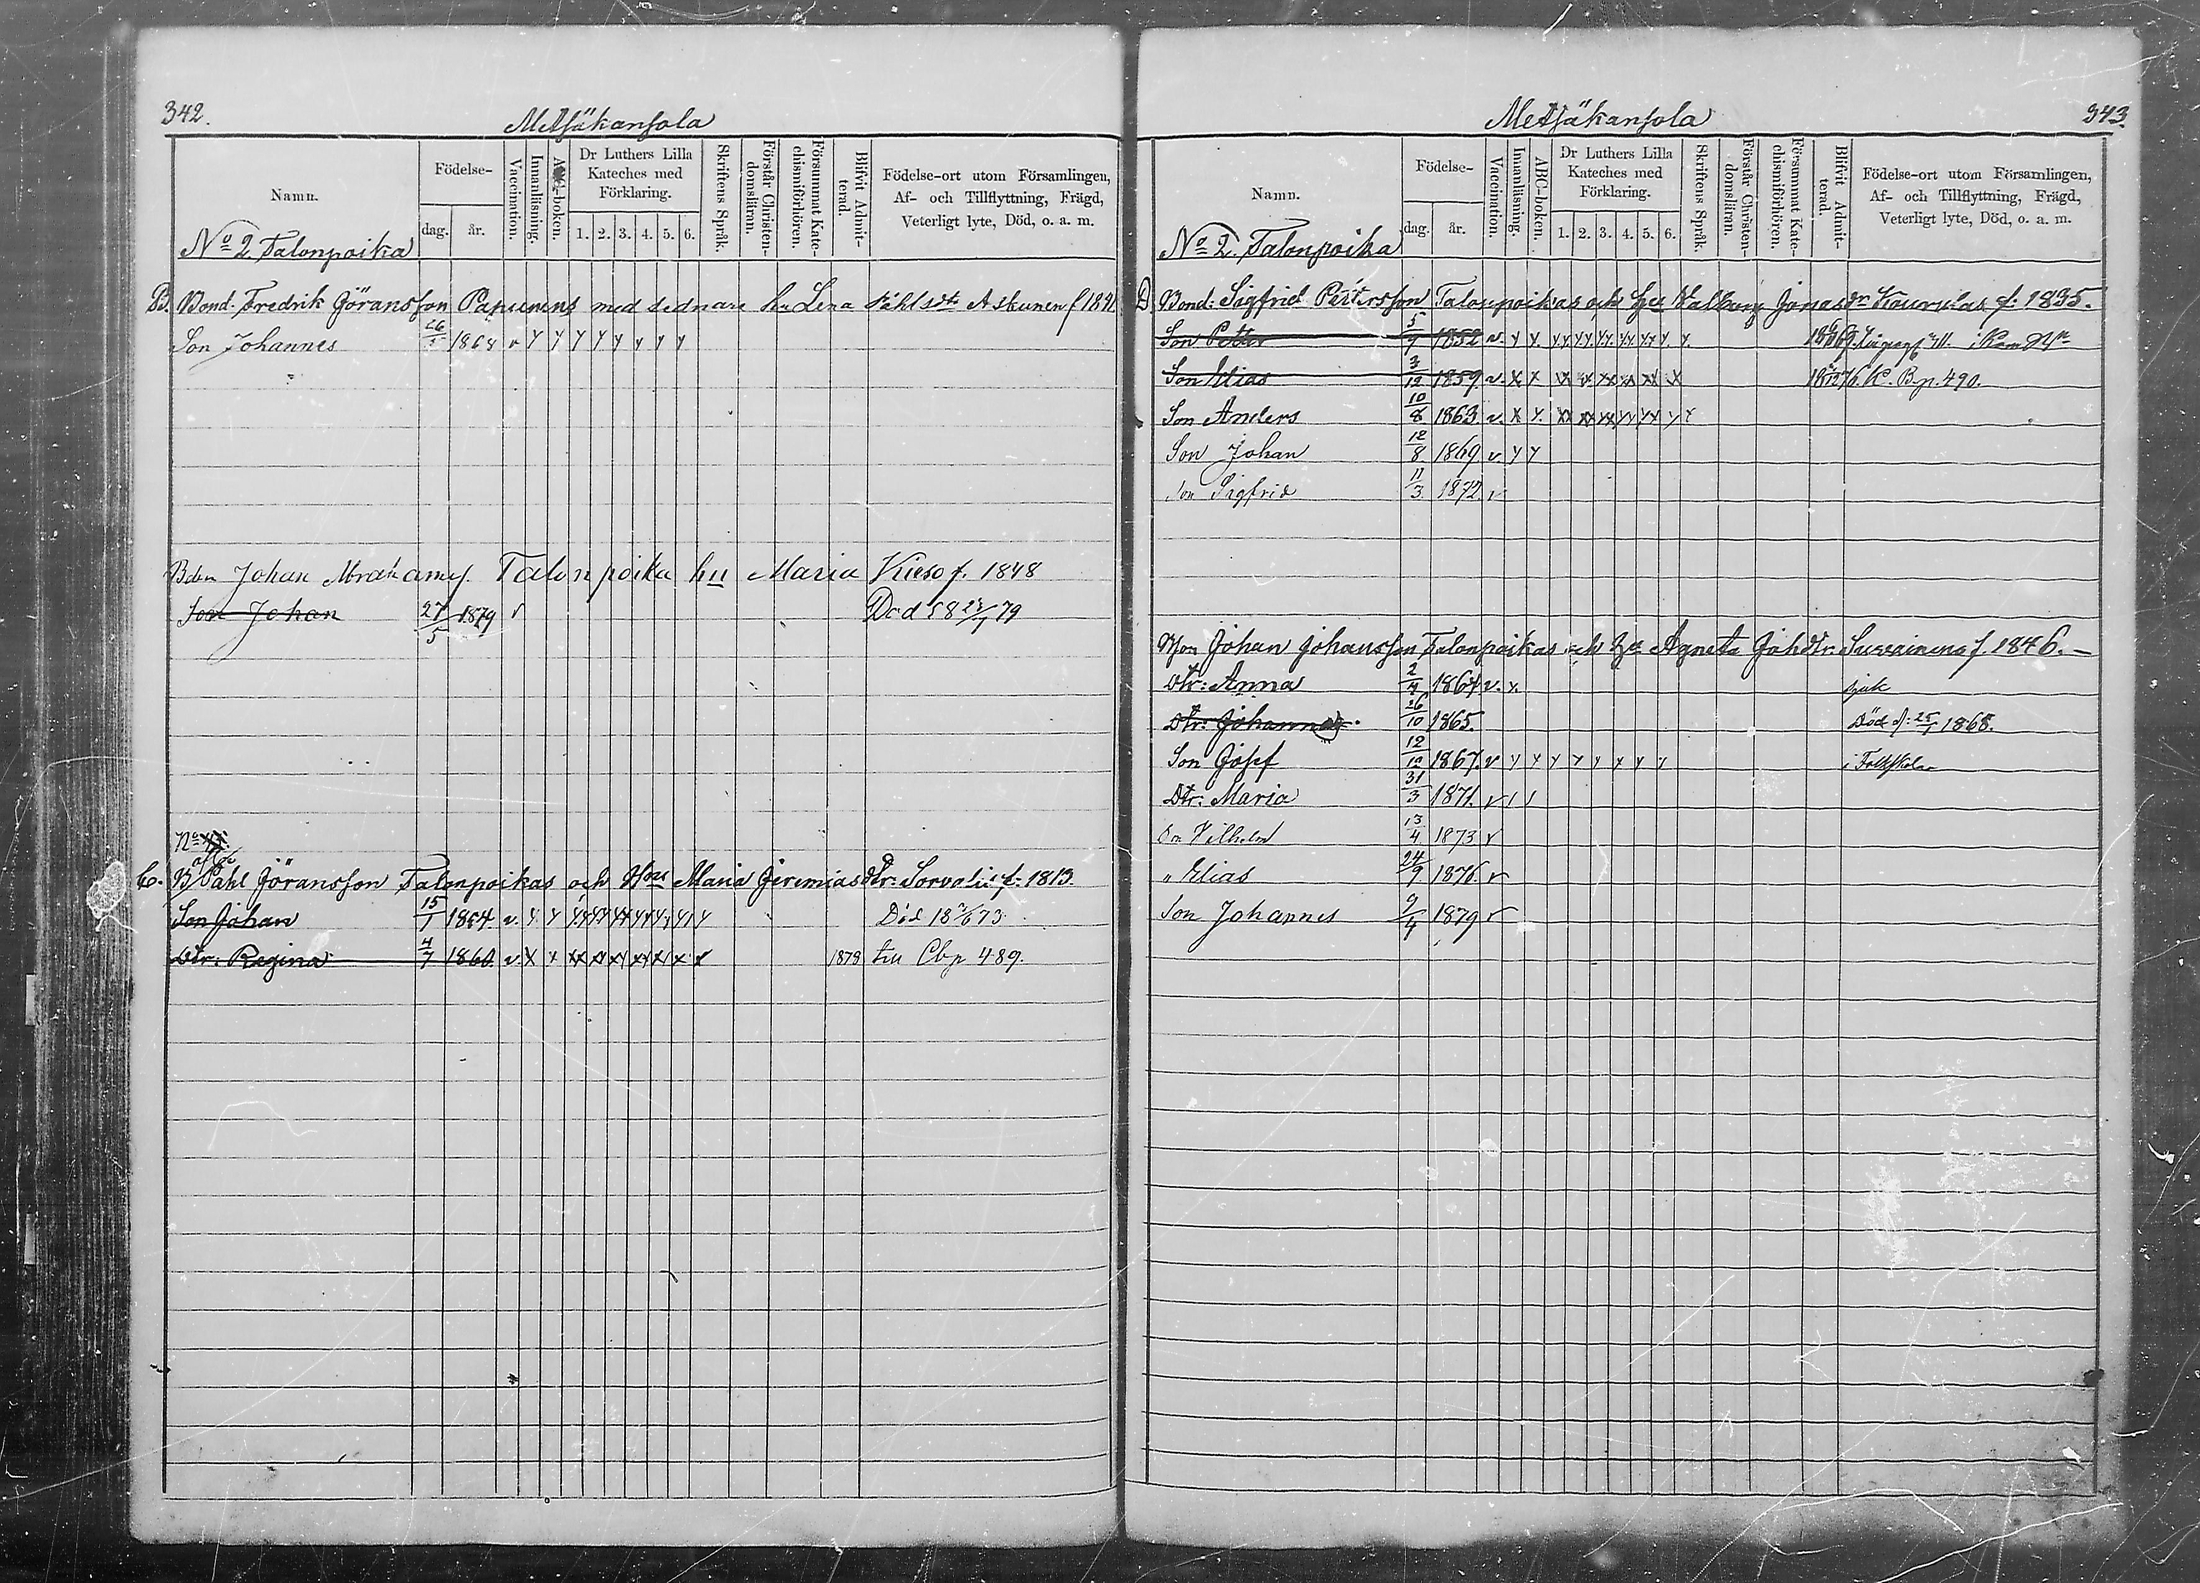 342.
Metsäkansola
Namn.
Födelse-
dag.
år.
Vaccination.
Innanläsning.
ABC-boken.
Dr Luthers Lilla
Kateches med
Förklaring.
1. 2. 3. 4. 5. 6.
Skriftens Språk.
Förstår Christen-
domsläran.
Försummat Kate-
chismiförhören.
Blifvit Admit-
terad.
Födelse-ort utom Församlingen,
Af- och Tillflyttning, Frägd,
Veterligt lyte, Död, o. a. m.
No 2. Talonpoika
B. Bond. Fredrik Göransson Papunens med sednare hu Lena Askunen f 1841.
Son Johannes 26 1864 v y y y y y y y y
Johan Abrahamss. Talonpoika hu Maria Kieso f. 1848
Son Johan 27/5 1879 v Död 18 79
No
C. B Påhl Göransson Talonpoikas och Hu Maria Jeremias dtr: Sorvali f: 1813.
Son Johan 15/1 1854 v. y y Död 18 73
Dtr: Regina 4/7 1860. v. x x 1879 till Cbp 489.
343.
Metsäkansola
Namn.
Födelse-
dag.
år.
Vaccination.
Innanläsning.
ABC-boken.
Dr Luthers Lilla
Kateches med
Förklaring.
1. 2. 3. 4. 5. 6.
Skriftens Språk.
Förstår Christen-
domsläran.
Försummat Kate-
chismiförhören.
Blifvit Admit-
terad.
Födelse-ort utom Församlingen,
Af- och Tillflyttning, Frägd,
Veterligt lyte, Död, o. a. m.
No 2. Talonpoika
D. Bond: Sigfrid Pettersson Talonpoikas och Hu Walborg Jonas dr Kourulas f: 1835.
Son Petter 5/9 1852 v. y y. 1869.
Son Elias 3/12 1859 v. x x 1876. K. B. p. 490.
Son Anders 10/8 1863. v. x y.
Son Johan 12/8 1869 v y y
Son Sigfrid 11/3 1872 v
Johan Johansson Talonpoikas och Hu Agneta Johdtr. f 1846. –
Dtr: Anna 2/4 1864. v. y. sjuk
Dtr: Johannes. 26/10 1865. Död d: 25/1 1868.
Son Josef 12/12 1867. v y y y y y y y y i Folkskolan
Dtr: Maria 31/3 1871. v / /
Son Vilhelm 13/4 1873 v
„ Elias 24/9 1876. v
Son Johannes 9/4 1879 v